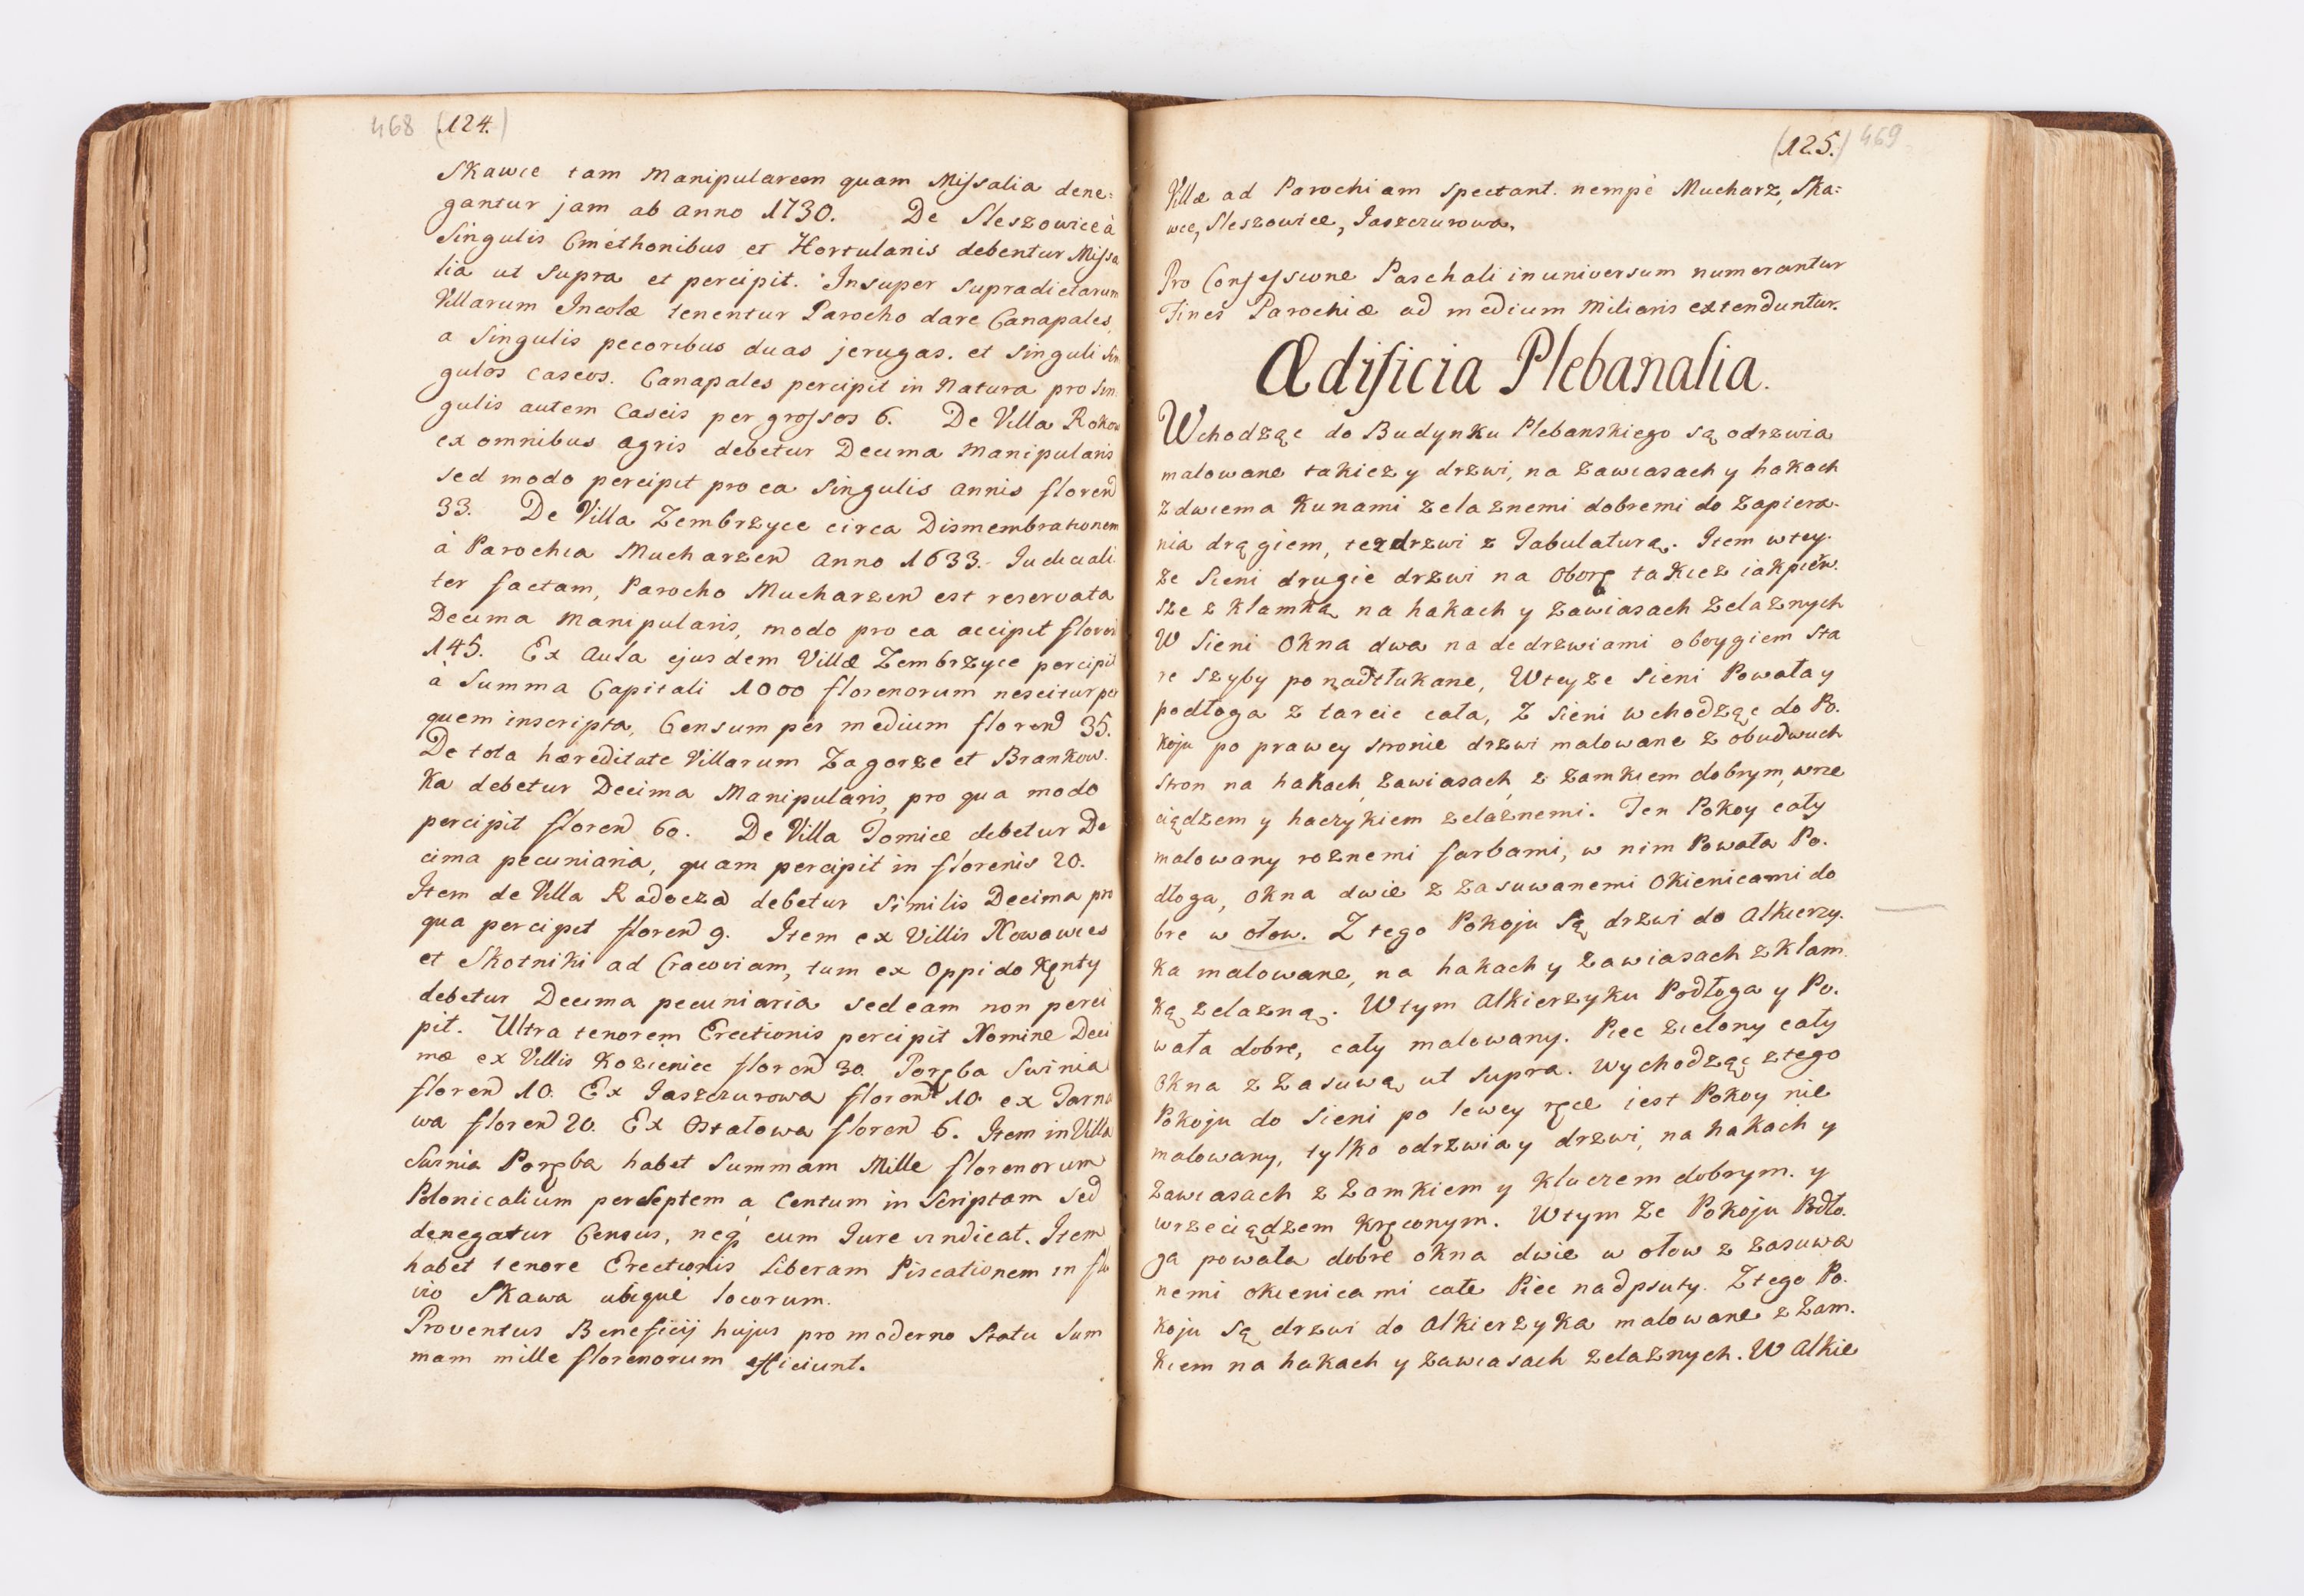 468 (124.)
Skawce tam Manipularem quam Missalia dene:
gantur jam ab anno 1730. De Sleszowice à
Singulis Cmethonibus et Hortulanis debentur Missa
lia ut supra et percipit. Insuper supradictarum
Villarum Incolæ tenentur Parocho dare Canapales,
a singulis pecoribus duas jerugas. et singuli sin
gulos caseos. Canapales percipit in Natura pro sin.
gulis autem Caseis per grossos 6. De Villa Rokow
ex omnibus agris debetur Decima Manipularis
sed modo percipit pro ea singulis annis floren
33. De Villa Zembrzyce circa Dismembrationem
à Parochia Mucharzen anno 1633. Judiciali
ter factam, Parocho Mucharzen est reservata
Decima Manipularis, modo pro ea accipit floren
145. Ex Aula ejusdem Villæ Zembrzyce percipit
à Summa Capitali 1000 florenorum nescitur per
quem inscripta, Censum per medium floren 35.
De tota hæreditate Villarum Zagorze et Brankow.
ka debetur Decima Manipularis, pro qua modo
percipit floren 60. De Villa Tomice debetur De
cima pecuniaria, quam percipit in florenis 20.
Item de Villa Radocza debetur similis Decima pro
qua percipit floren 9. Item ex Villis Nowawies
et Skotniki ad Cracoviam, tum ex Oppido Kęnty
debetur Decima pecuniaria sed eam non perci
pit. Ultra tenorem Erectionis percipit Nomine Deci
mæ ex Villis Kozieniec floren 30. Poręba Swinia
floren 10. Ex Jaszczurowa floren 10. ex Tarna
wa floren 20. Ex Ostałowa floren 6. Item in Villa
Swinia Poręba habet Summam Mille florenorum
Polonicalium per Septem a Centum in Scriptam sed
denegatur Census, neq eum Jure vindicat. Item
habet tenore Erectionis Liberam Piscationem in flu
vio Skawa ubique locorum.
Proventus Beneficij hujus pro moderno Statu Sum
mam mille florenorum efficiunt.
(125.) 469
Villæ ad Parochiam spectant. nempè Mucharz, Ska:
wce, Sleszowice, Jaszczurowa.
Pro Confessione Paschali in universum numerantur
Fines Parochiæ ad medium Miliaris extenduntur.
Ædificia Plebanalia.
Wchodząc do Budynku Plebanskiego są odrzwia
malowane takiez y drzwi, na zawiasach y hakach
z dwiema Kunami zelaznemi dobremi do zapiera.
nia drągiem, tez drzwi z Tabulaturą. Item w tey.
ze Sieni drugie drzwi na Oborę takiez iak pierw.
sze z klamką na hakach y zawiasach zelaznych
W Sieni Okna dwa nade drzwiami oboygiem sta
re szyby ponadtłukane, W teyze Sieni Powała y
podłoga z tarcic cała, Z Sieni wchodząc do Po.
koju po prawey stronie drzwi malowane z obudwuch
stron na hakach, zawiasach, z zamkiem dobrym, wrze
ciądzem y haczykiem zelaznemi. Ten Pokoy cały
malowany roznemi farbami, w nim Powała Po.
dłoga, okna dwie z zasuwanemi Okienicami do
bre w ołow. Z tego Pokoju są drzwi do Alkierzy.
ka malowane, na hakach y zawiasach z klam.
ką zelazną. W tym Alkierzyku Podłoga y Po.
wała dobre, cały malowany. Piec zielony cały
Okna z zasuwą ut supra. Wychodząc z tego
Pokoju do Sieni po lewey ręce iest Pokoy nie
malowany, tylko odrzwia y drzwi, na hakach y
zawiasach z zamkiem y kluczem dobrym. y
wrzeciądzem kręconym. W tym ze Pokoju Podło.
ga powała dobre okna dwie w ołow z zasuwa
nemi okienicami całe Piec nadpsuty. Z tego Po.
koju są drzwi do Alkierzyka malowane z zam.
kiem na hakach y zawiasach zelaznych. W Alkie